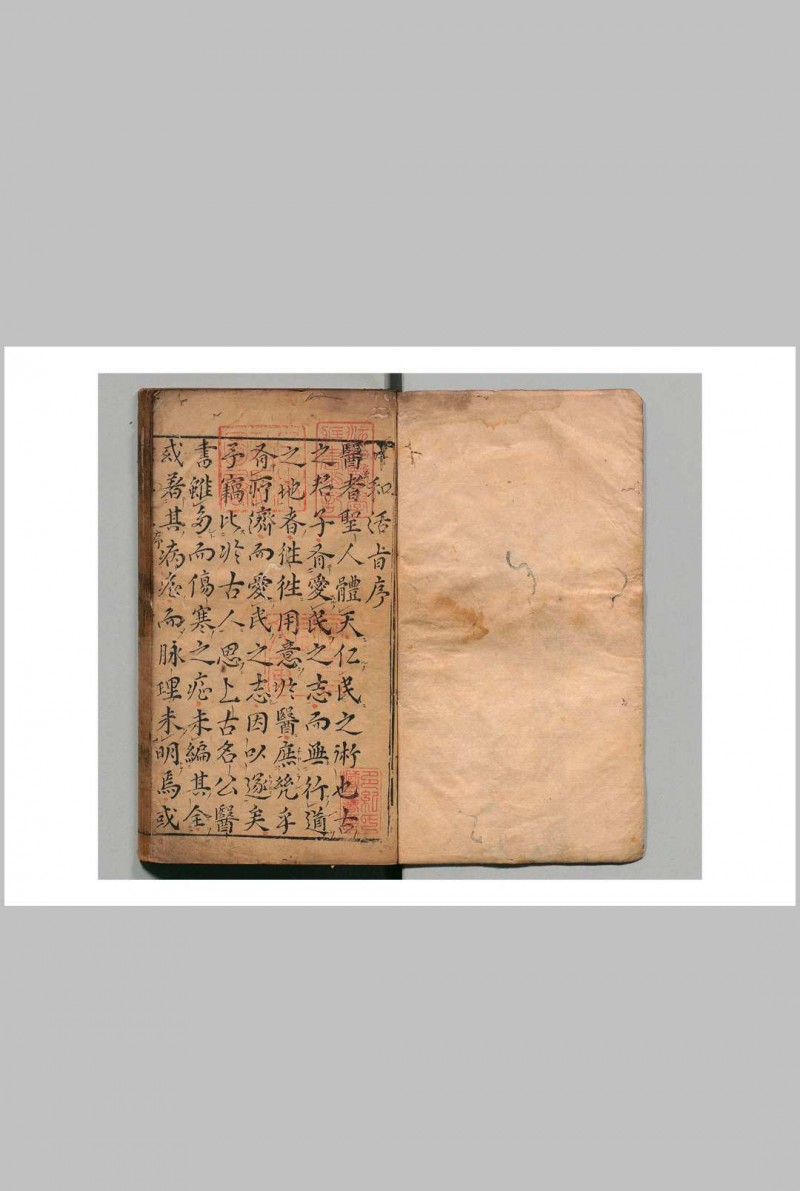 和活旨序
醫者聖人體天仁民之術也古
之君子有愛民之志而無行道
之地者徃徃用意於醫庶幾乎
有所濟而愛民之志因以遂矣
予竊比於古人思上古名公醫
書雖多而傷寒之症未編其全
或著其病症而脉理未明焉或